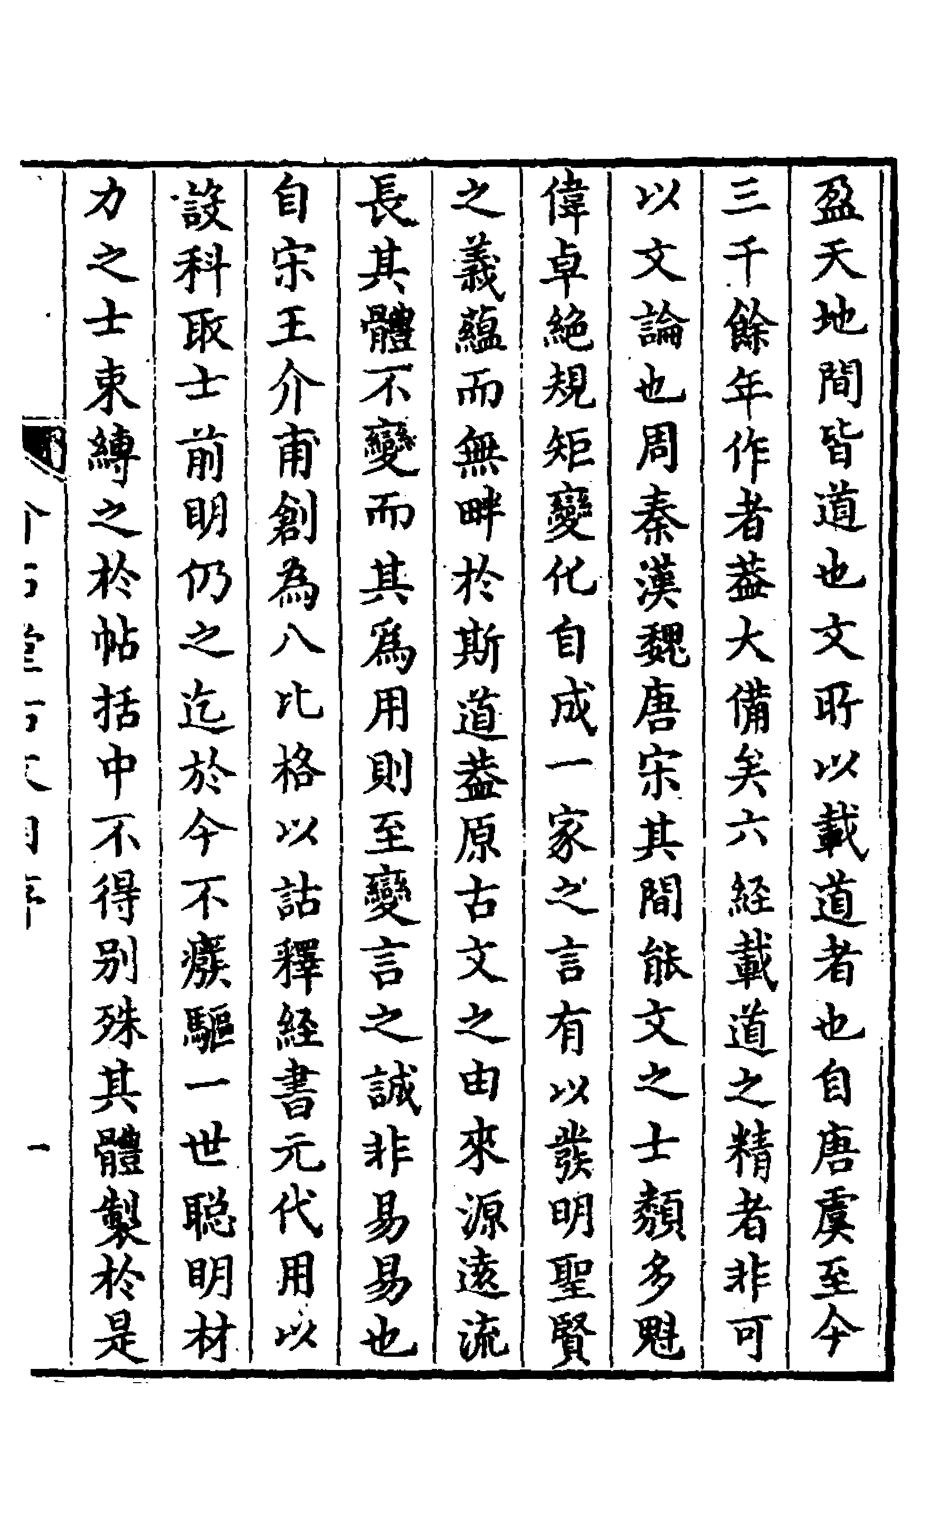 盈天地間皆道也文所以載道者也自唐虞至今
三千餘年作者葢大備矣六経載道之精者非可
以文論也周秦漢魏唐宋其間能文之士頽多魁
偉卓絶規矩變化自成一家之言有以發明聖賢
之義蘊而無畔於斯道葢原古文之由來源遠流
長其體不變而其爲用則至變言之誠非易易也
自宋王介甫創為八比格以詁釋経書元代用以
設科取士前明仍之迄於今不廢驅一世聪明材
力之士束縛之於帖括中不得别殊其體製於是